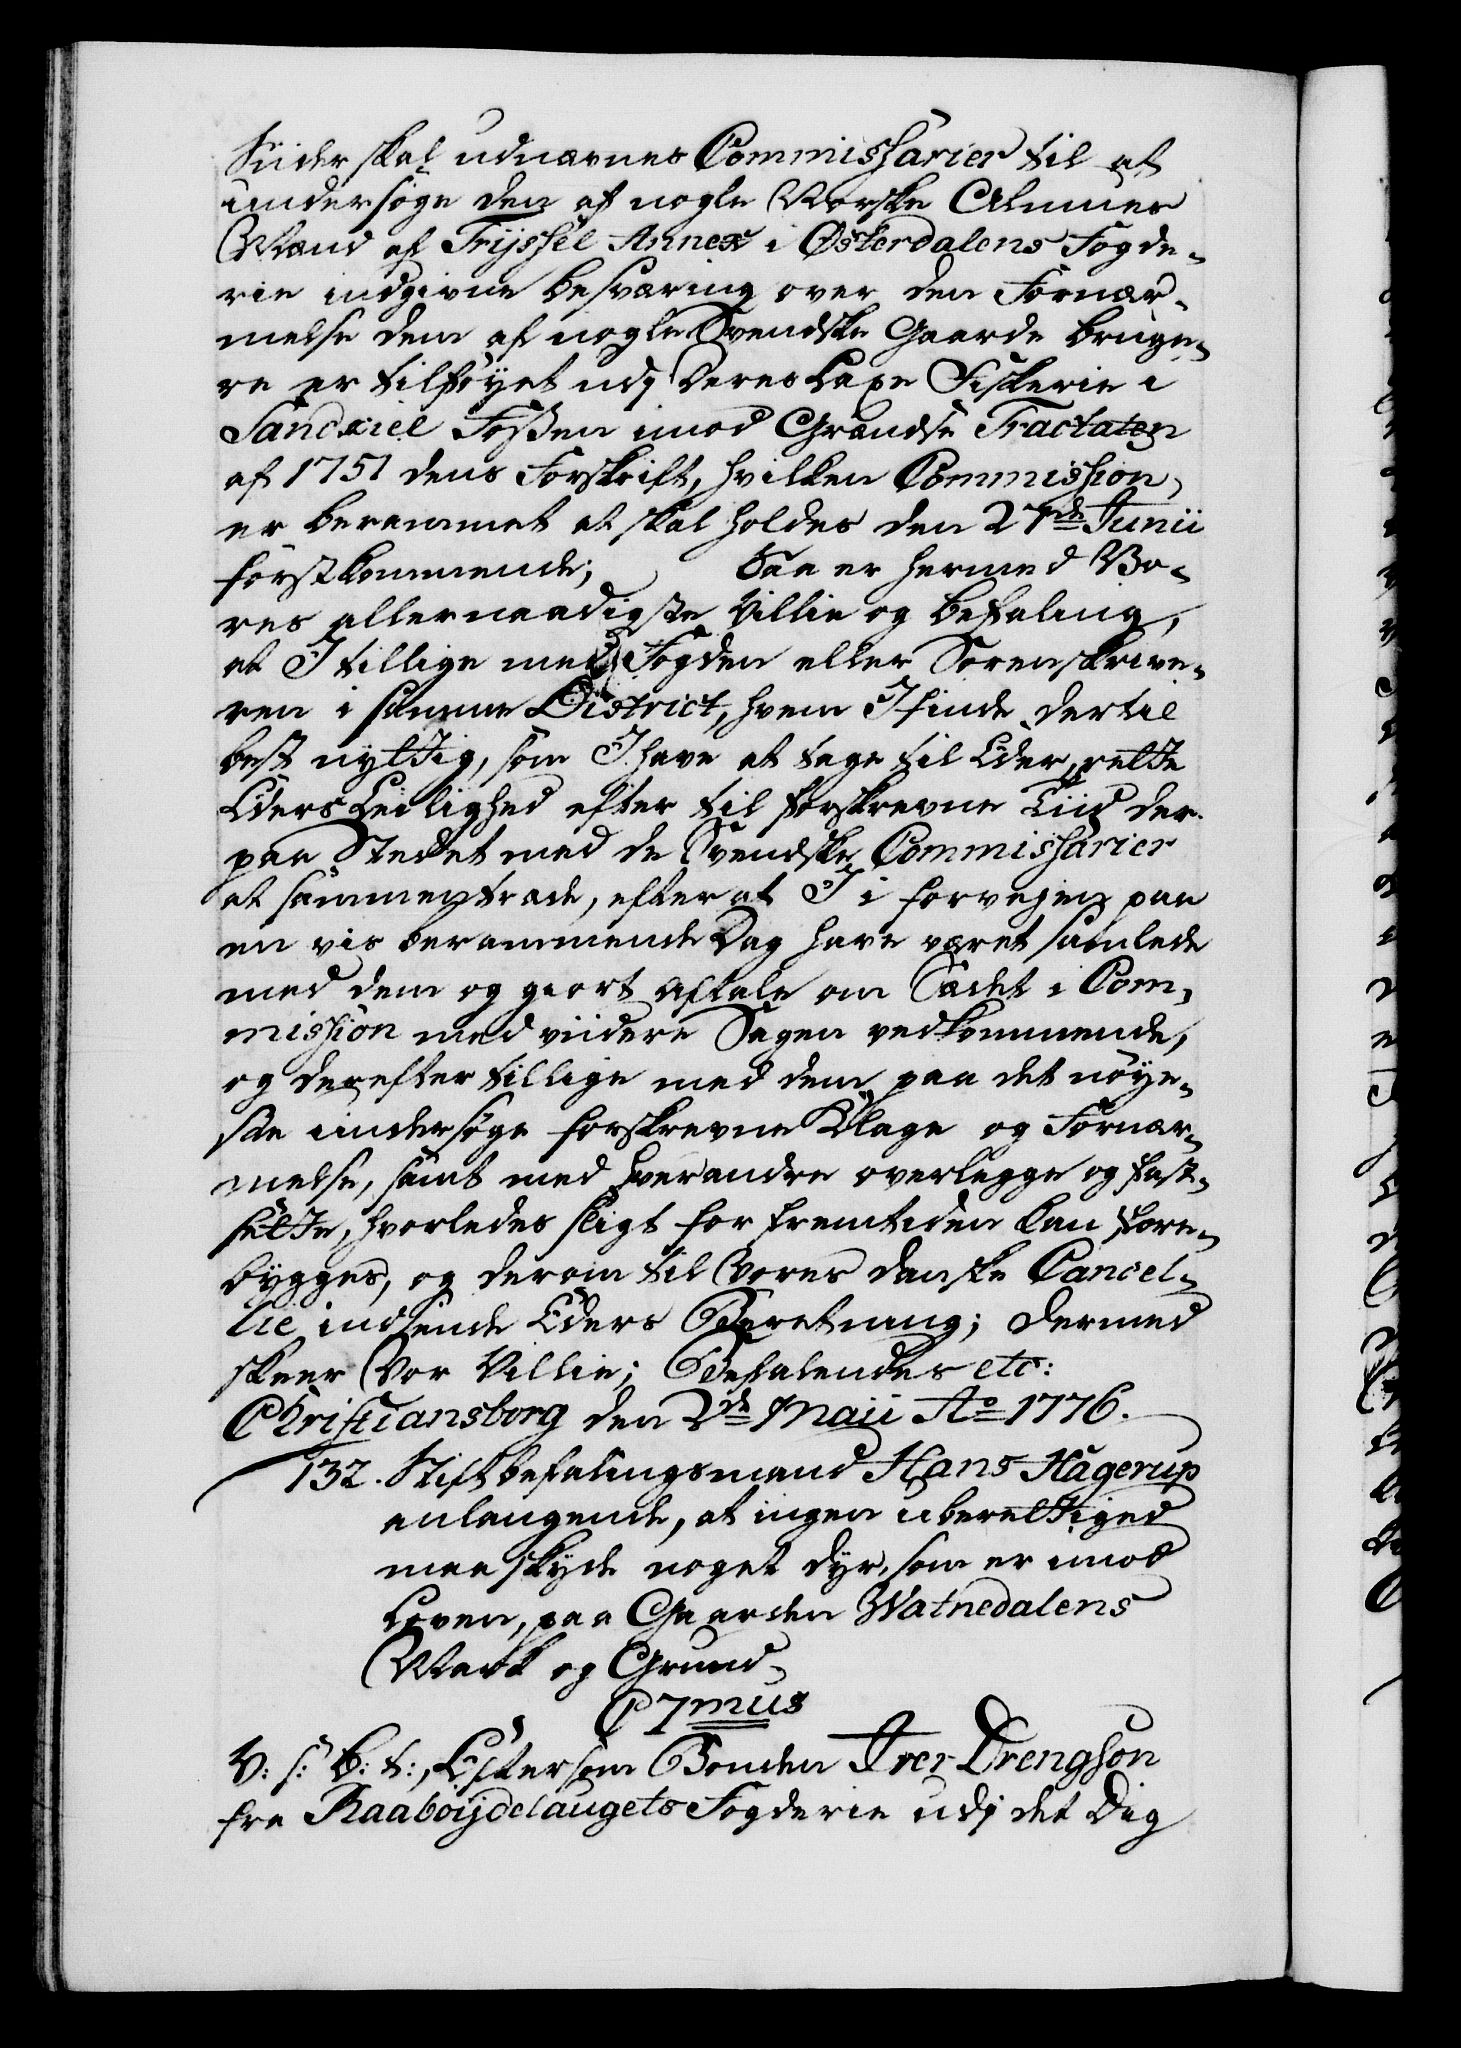 Siider skal udnævnes Commissarier til at
undersøge den af nogle Norske Almues
Mænd af Trijssel Annex i Østerdalens Fogde-
rie indgivne besværing over den Fornær-
melse dem af nogle Svendske Gaarde bruge-
re er tilføyet udj deres Laxe Fiskerie i
Sandkiel Fossen imod Grændse Tractaten
af 1751 dens Forskrift, hvilken Commission
er berammet at skal holdes den 27de Junii
førstkommende; Saa er hermed Vo-
res allernaadigste Villie og befaling,
at I tillige med Fogden eller Sorenskrive-
ren i samme District, hvem I finde dertil
best nyttig, som I have at tage til Eder, rette
Eders Leilighed efter til forskrevne Tiid der
paa Stedet med de Svendske Commissarier
at sammentræde, efter at I i forvejen paa
en vis berammende Dag have været samlede
med dem og giort Aftale om Sædet i Com-
mission med viidere Sagen vedkommende,
og derefter tillige med dem paa det nøye-
ste undersøge forskrevne Klage og Fornær-
melse, samt med hverandre overlegge og fast-
sætte, hvorledes sligt for fremtiden kan fore-
bygges, og derom til Vores danske Cancel-
lie indsende Eders Beretning; dermed
skeer Vor Villie; Befalendes etc:
Christiansborg den 2de Maii Ao 1776.
132. Stiftbefalingsmand Hans Hagerup
anlangende, at ingen uberettiged
maa skyde noget dyr, som er imod
Loven, paa Gaarden Watnedalens
Mark og Grund
C 7mus
V: s: B: t:, Eftersom Bonden Iver Drengson
fra Raaboijdelaugets Fogderie udj det Dig